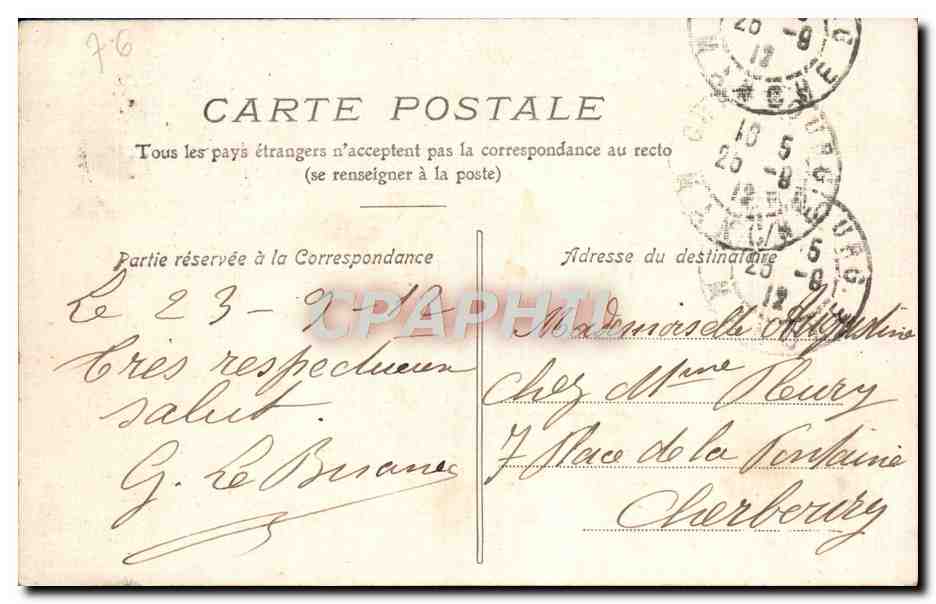 7-6
CARTE POSTALE
Tous les pays étrangers n'acceptent pas la correspondance au recto
(se renseigner à la poste)
Partie réservée à la Correspondance
Le 23-9-12
très respectueux
salut.
G. Le
Adresse du destinataire
Mademoiselle Augustine
Chez Mme Fleury
7 Place de la Fontaine
Cherbourg
CHERBOURG
16 5
25 -9
12
MANCHE
CPAPHTI